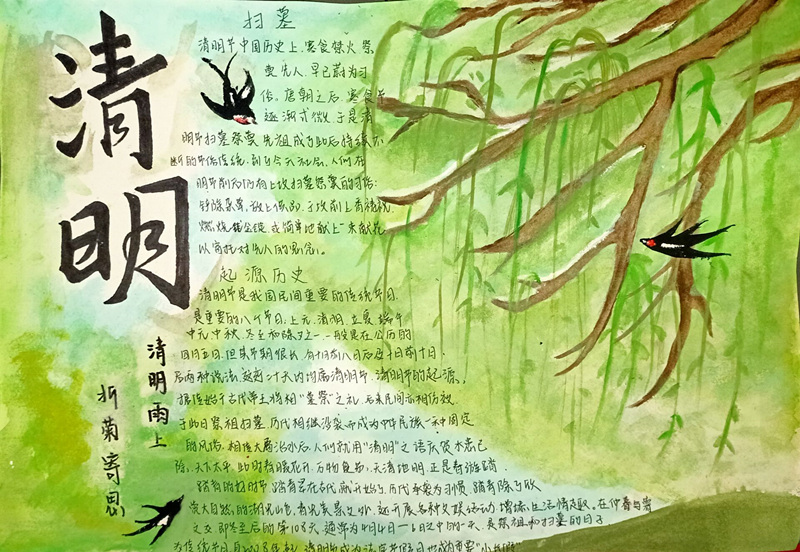 清明
清明雨上
折菊寄思
扫墓
清明节中国历史上,寒食禁火,祭
奠先人,早已蔚为习
俗。唐朝之后,寒食节
逐渐式微,于是清
明节扫墓祭奠先祖成了此后持续不
断的节俗传统,到了今天社会,人们在
明节前后仍有上坟扫墓祭奠的习俗:
铲除杂草,放上供品,于坟前上香祷祝
燃烧纸金锭,或简单地献上一束献花
以寄托对先人的思念。
起源历史
清明节是我国民间重要的传统节日,
是重要的八个节日,上元、清明、立夏、端午
中元、中秋、冬至和除夕之一,一般是在公历的
四月五日,但其节期很长,有十日前八日后及十日前十日
后两种说法,这近二十天内均属清明节,清明节的起源,
据传始于古代帝王将相“墓祭”之礼,后来民间亦相仿效
于此日祭祖扫墓,历代相继沿袭而成为中华民族一种固定
的风俗,相传大禹治水后,人们就用“清明”之语庆贺水患已
除,天下太平,此时春暖花开,万物复苏,天清地明,正是春游踏
踏青的好时节,踏青早在古代就开始了,历代承袭为习惯,踏青除了欣
赏大自然的湖光山色,春光美景之外,还开展各种文娱活动,增添生活情趣。在仲春与暮
之交,即冬至后的第108天,通常为4月4日-6日之中的一天,是祭祖和扫墓的日子